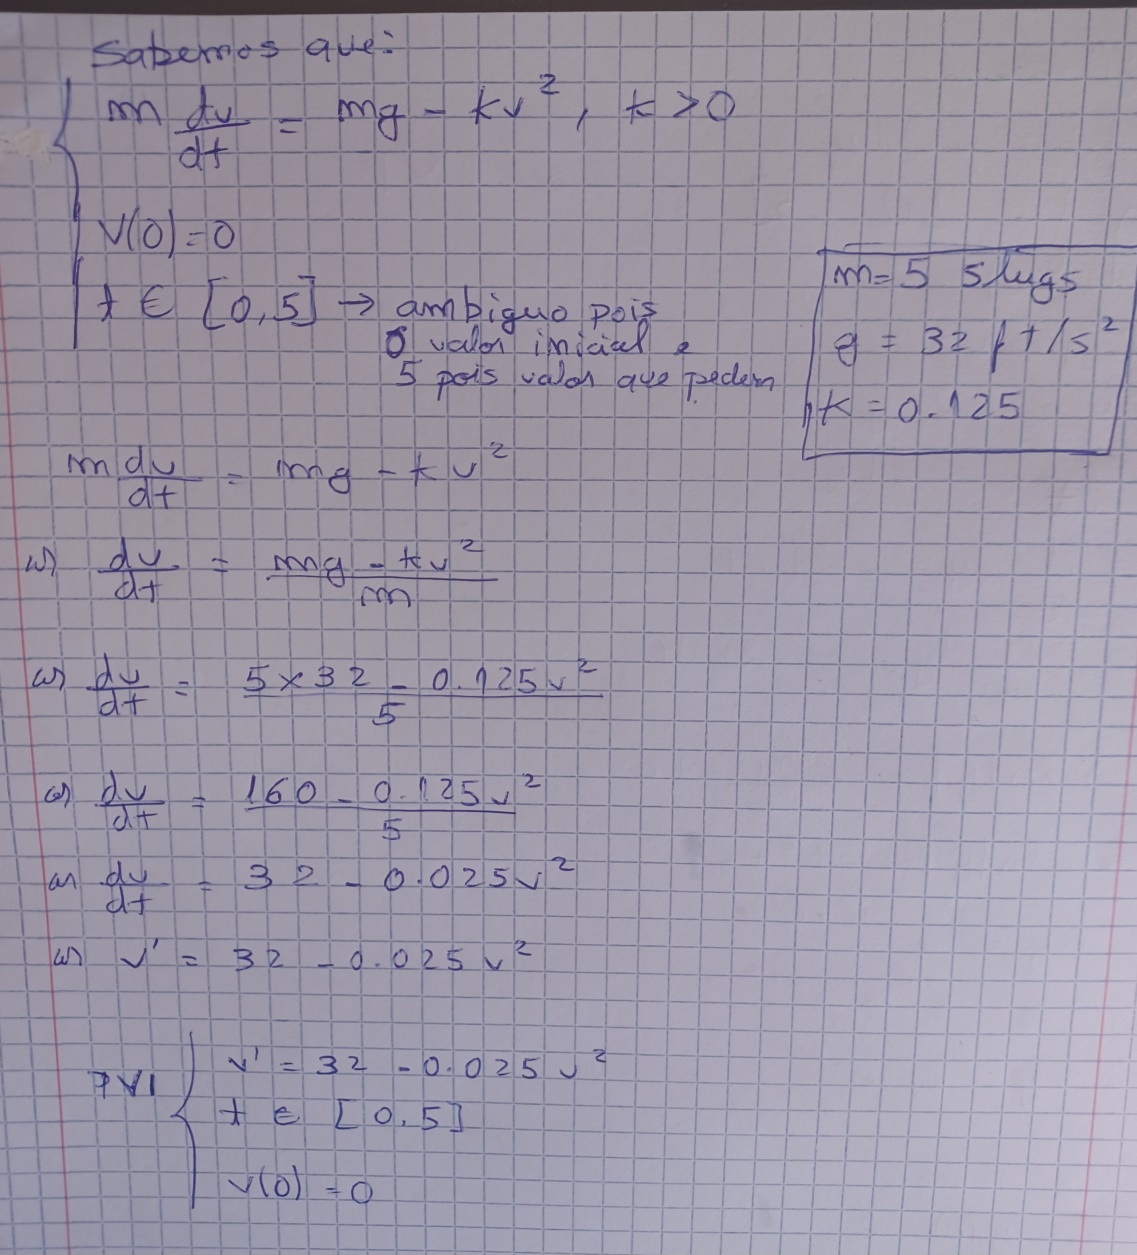 Sabemos que:
m dv/dt = mg - kv², k > 0
v(0) = 0
t ∈ [0,5] → ambíguo pois
0 valor inicial e
5 pois valor que pedem
m = 5 slugs
g = 32 ft/s²
k = 0.125
m dv/dt = mg - kv²
⇔ dv/dt = (mg - kv²)/m
⇔ dv/dt = (5×32 - 0.125v²)/5
⇔ dv/dt = (160 - 0.125v²)/5
⇔ dv/dt = 32 - 0.025v²
⇔ v' = 32 - 0.025v²
PVI { v' = 32 - 0.025v²
t ∈ [0,5]
v(0) = 0